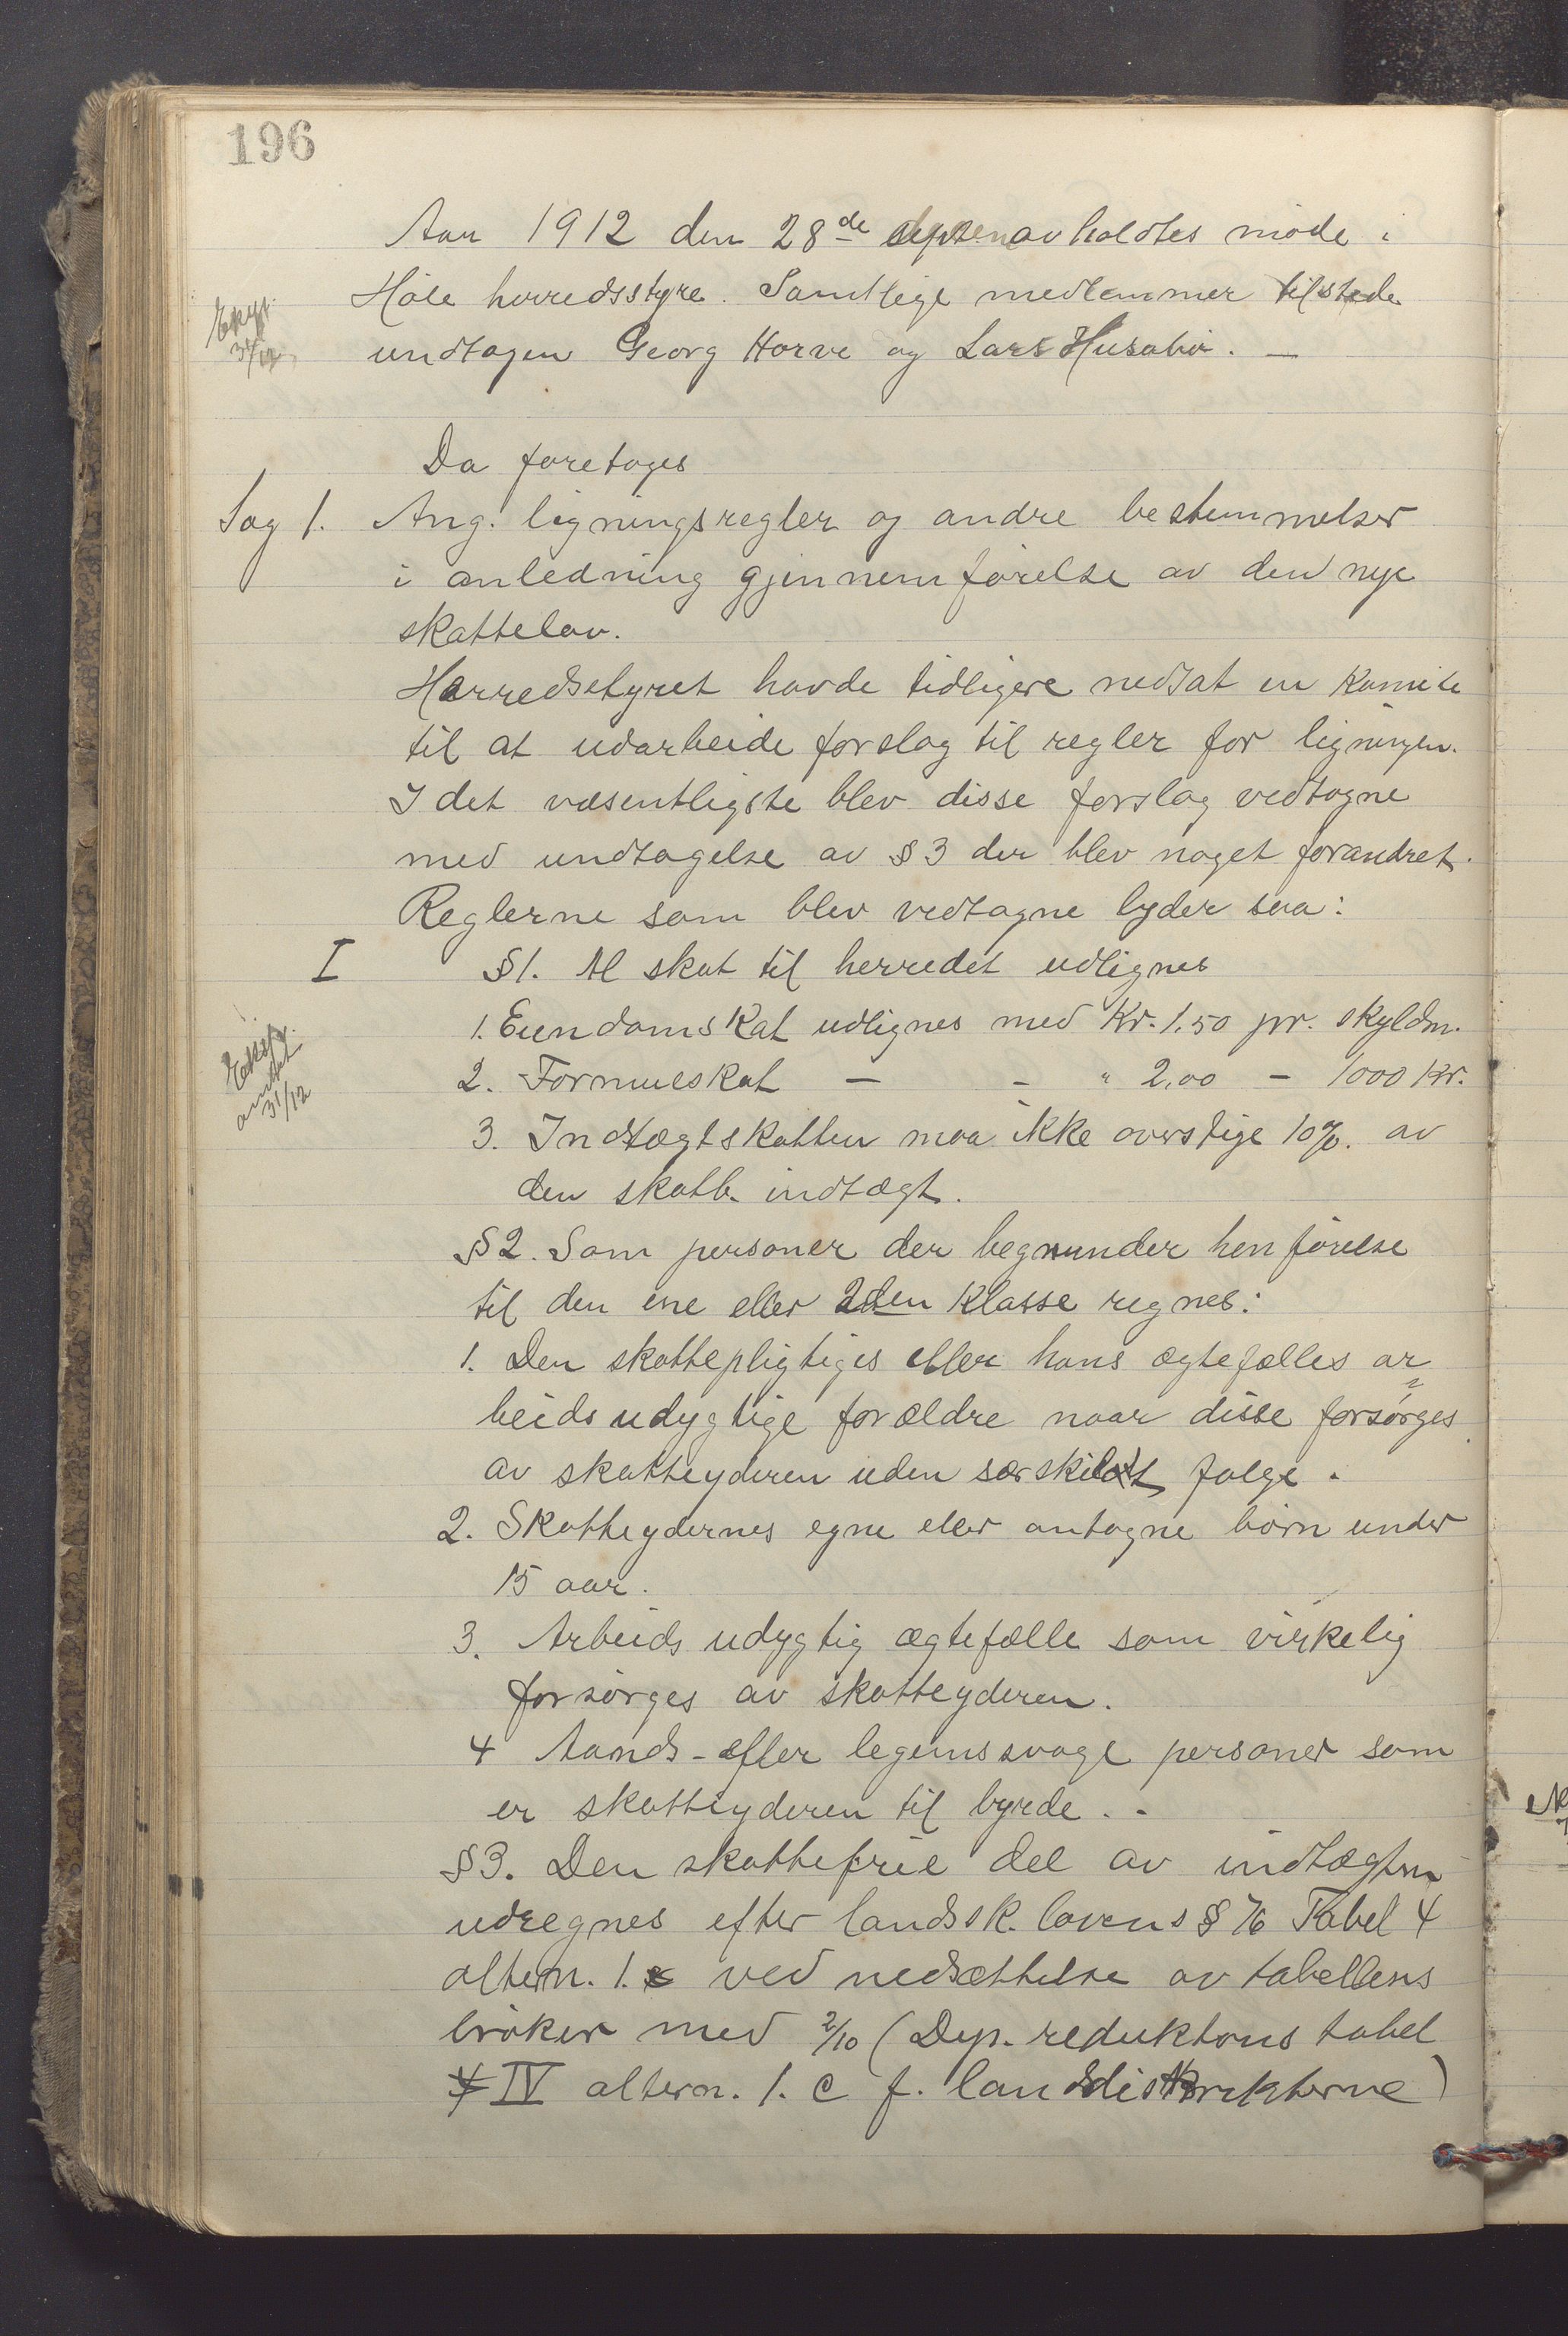 196
Aar 1912 den 28de septem avholdtes møde i
Høle herredsstyre. Samtlige medlemmer tilstede
Eksp.
31/12
undtagen Georg Horve og Lars Husabø. —
Da foretoges
Sag 1. Ang. ligningsregler og andre bestemmelser
i anledning gjennemførelse av den nye
skattelov.
Herredsstyret havde tidligere nedsat en komite
til at udarbeide forslag til regler for ligningen.
I det væsentligste blev disse forslag vedtagne
med undtagelse av § 3 der blev noget forandret.
Reglerne som blev vedtagne lyder saa:
I §1. Al skat til herredet udlignes
1. Eiendomskat udlignes med Kr. 1,50 pr. skyldm.
Eksp.
amtet
31/12
2. Formueskat — — " 2,00 — 1000 Kr.
3. Indtægtskatten maa ikke overstige 10%. av
den skattb. indtægt.
§ 2. Som personer der begrunder henførelse
til den ene eller 2den klasse regnes:
1. Den skattepligtiges eller hans ægtefælles ar
beidsudygtige forældre naar disse forsørges
av skatteyderen uden særskilt følge.
2. Skatteydernes egne eller antagne børn under
15 aar.
3. Arbeidsudygtig ægtefælle som virkelig
forsørges av skatteyderen.
4 Aands- eller legemssvage personer som
er skatteyderen til byrde. -
§ 3. Den skattefrie del av indtægten
udregnes efter landssk. lovens § 76 Tabel 4
altern. 1. ved nedsættelse av tabellens
brøker med 2/10 (Dep. reduktions tabel
IV altern. 1. c f. landdistrikterne)